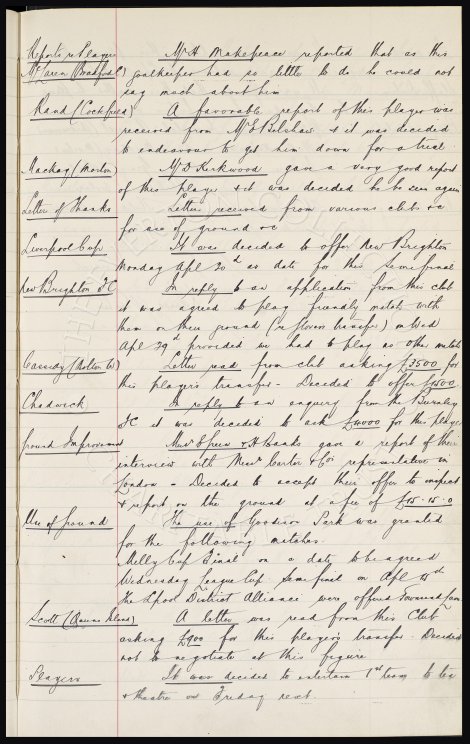 Reports re Players Mr H Makepeace reported that as this
McLaren (Bradford C) goalkeeper had so little to do he could not
say much about him
Rand (Cockfield) A favorable report of this player was
received from Mr E Belshaw & it was decided
to endeavour to get him down for a trial
Mackay (Morton) Mr D Kirkwood gave a very good report
of this player & it was decided he be seen again
Letter of Thanks Letters received from various clubs &c
for use of ground &c
Liverpool Cup It was decided to offer New Brighton
Monday Apl 20th as date for this Semi final
New Brighton F.C In reply to an application from this club
it was agreed to play friendly match with
them on their ground (re transfer) on Wed
Apl 29th provided we had to play no other match
Cassidy (Bolton W) Letter read from club asking £3500 for
this player's transfer - Decided to offer £1500
Chadwick In reply to an enquiry from the Burnley
FC it was decided to ask £4000 for this player
Ground Improvement Messrs & H Banks gave a report of their
interview with Messrs Carter & Co's representative in
London - Decided to accept their offer to inspect
& report on the ground at a fee of £15.15.0
Use of Ground The use of Goodison Park was granted
for the following matches.
Melly Cup Final on a date to be agreed
Wednesday League Cup Semi final on Apl 15th
The Lpool District Alliance were offered
Scott (Queens Island) A letter was read from this Club
asking £900 for this player's transfer. Decided
not to negotiate at this figure
Players It was decided to entertain 1st team to tea
& theatre on Friday next.